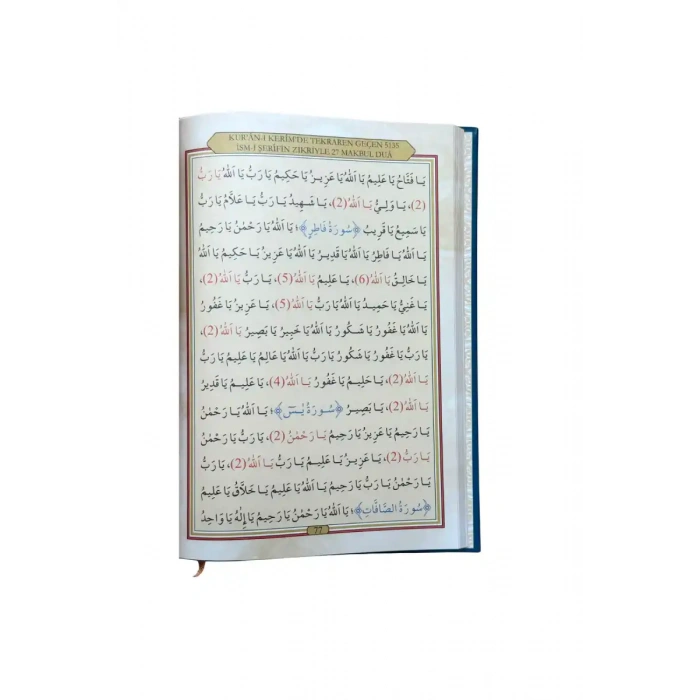 KUR'ÂN-I KERÎM'DE TEKRAREN GEÇEN 5135
İSM-İ ŞERÎFİN ZİKRİYLE 27 MAKBUL DUÂ
يَا فَتَّاحُ يَا عَلِيمُ يَا اَللهُ يَا عَزِيزُ يَا حَكِيمُ يَا رَبُّ يَا اَللهُ يَا رَبُّ
(2)، يَا وَلِيُّ يَا اَللهُ (2)، يَا شَهِيدُ يَا رَبُّ يَا عَلَّامُ يَا رَبُّ
يَا سَمِيعُ يَا قَرِيبُ ﴿سُورَةُ فَاطِرٍ﴾؛ يَا اَللهُ يَا رَحْمٰنُ يَا رَحِيمُ
يَا اَللهُ يَا فَاطِرُ يَا اَللهُ يَا قَدِيرُ يَا اَللهُ يَا عَزِيزُ يَا حَكِيمُ يَا اَللهُ
يَا خَالِقُ يَا اَللهُ (6)، يَا عَلِيمُ يَا اَللهُ (5)، يَا رَبُّ يَا اَللهُ (2)،
يَا غَنِيُّ يَا حَمِيدُ يَا اَللهُ يَا رَبُّ يَا اَللهُ (5)، يَا عَزِيزُ يَا غَفُورُ
يَا اَللهُ يَا غَفُورُ يَا شَكُورُ يَا اَللهُ يَا خَبِيرُ يَا بَصِيرُ يَا اَللهُ (2)،
يَا رَبُّ يَا غَفُورُ يَا شَكُورُ يَا رَبُّ يَا اَللهُ يَا عَالِمُ يَا عَلِيمُ يَا رَبُّ
يَا اَللهُ (2)، يَا حَلِيمُ يَا غَفُورُ يَا اَللهُ (4)، يَا عَلِيمُ يَا قَدِيرُ
يَا اَللهُ (2)، يَا بَصِيرُ ﴿سُورَةُ يٰسٓ﴾؛ يَا اَللهُ يَا رَحْمٰنُ
يَا رَحِيمُ يَا عَزِيزُ يَا رَحِيمُ يَا رَحْمٰنُ (2)، يَا رَبُّ يَا رَحْمٰنُ
يَا رَبُّ (2)، يَا عَزِيزُ يَا عَلِيمُ يَا رَبُّ يَا اَللهُ (2)، يَا رَبُّ
يَا رَحْمٰنُ يَا رَبُّ يَا رَحِيمُ يَا اَللهُ يَا عَلِيمُ يَا خَلَّاقُ يَا عَلِيمُ
﴿سُورَةُ الصَّافَّاتِ﴾؛ يَا اَللهُ يَا رَحْمٰنُ يَا رَحِيمُ يَا إِلٰهُ يَا وَاحِدُ
77